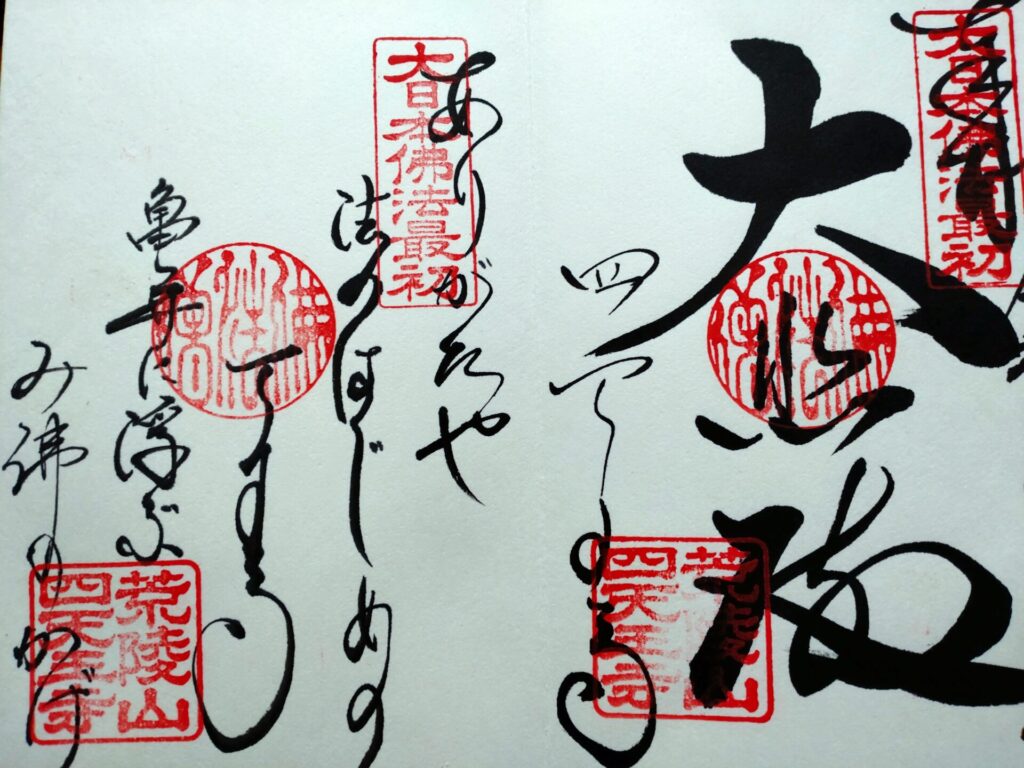 大日本佛法最初
大悲殿
佛法僧
四天王寺
荒陵山
四天王寺
大日本佛法最初
ありがたや
法のはじめの
天王寺
佛法僧
亀井に浮ぶ
み佛のかず
荒陵山
四天王寺